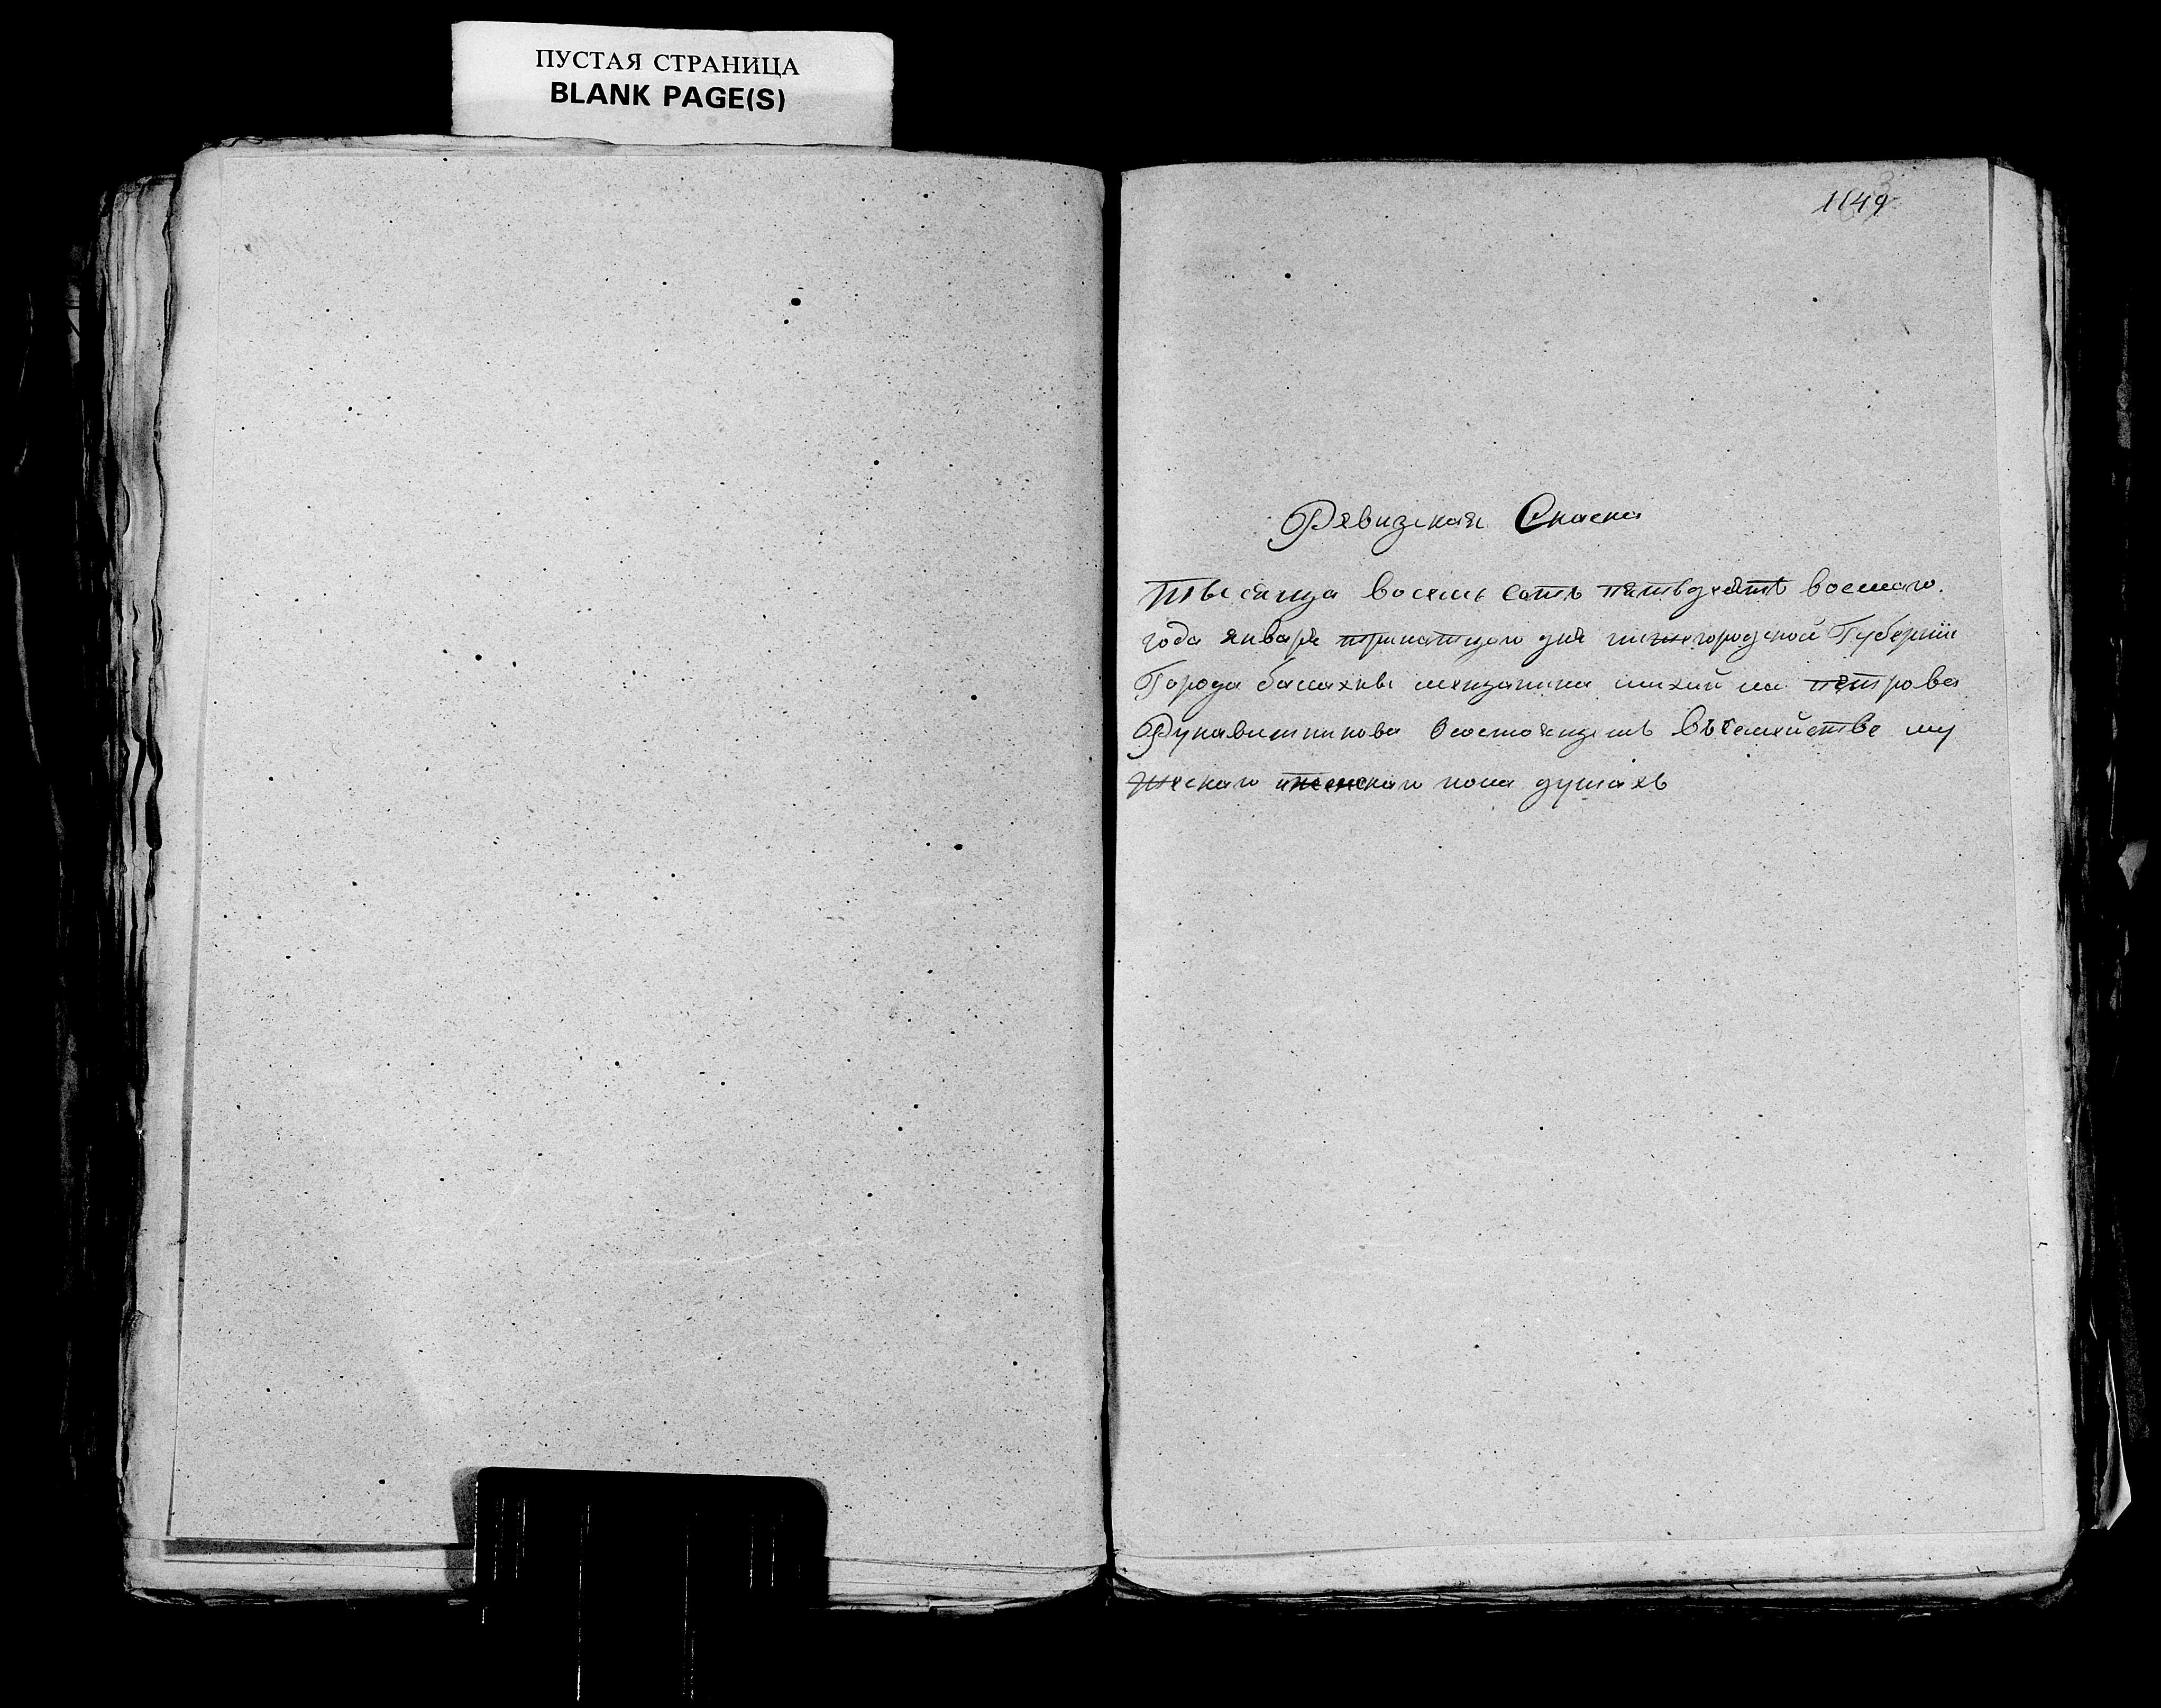 ПУСТАЯ СТРАНИЦА
BLANK PAGE(S)
1149
Ревизская Скаска
Тысяща восемь сотъ пятьдеятъ восмаго.
года января тринатцого дня нижегородской Губернiи
Города балахны мещанина михайла петрова
Рукавишникова Осостоящемъ въсемействе му
жескаго иженскаго пола душахъ